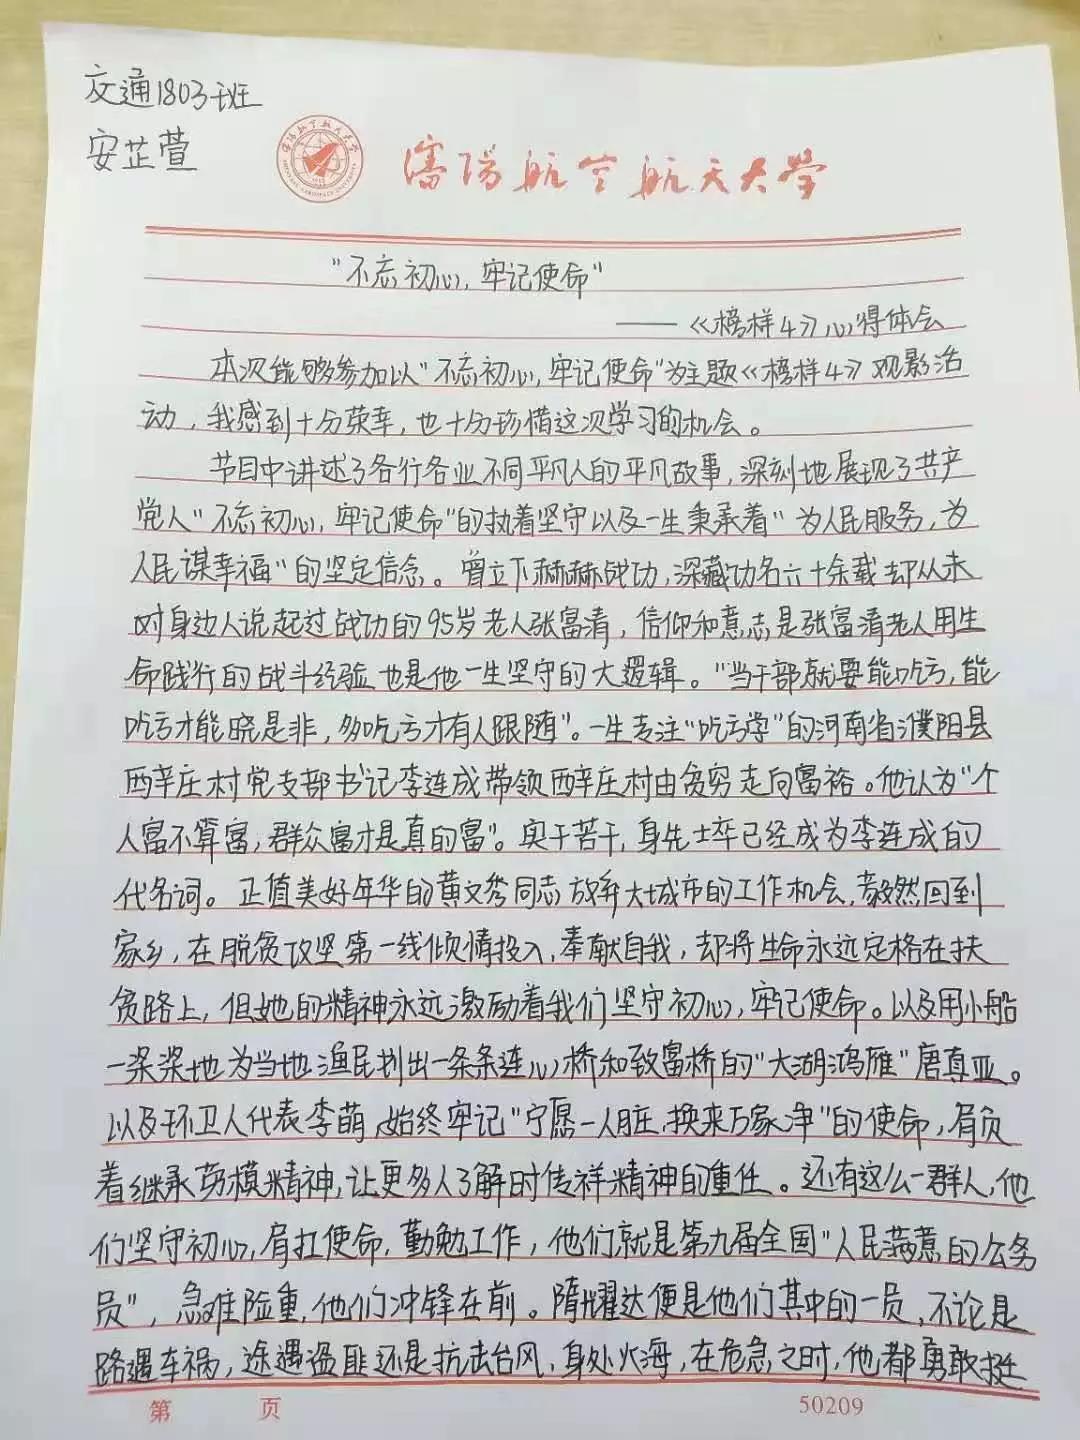 交通1803班
安芷萱
沈阳航空航天大学
"不忘初心,牢记使命"
——《榜样4》心得体会
本次能够参加以"不忘初心,牢记使命"为主题《榜样4》观影活
动,我感到十分荣幸,也十分珍惜这次学习的机会。
节目中讲述了各行各业不同平凡人的平凡故事,深刻地展现了共产
党人"不忘初心,牢记使命"的执着坚守以及一生秉承着"为人民服务,为
人民谋幸福"的坚定信念。曾立下赫赫战功,深藏功名六十余载却从未
对身边人说起过战功的95岁老人张富清,信仰和意志是张富清老人用生
命践行的战斗经验也是他一生坚守的大逻辑。"当干部就要能吃亏,能
吃亏才能晓是非,多吃亏才有人跟随"。一生专注"吃亏学"的河南省濮阳县
西辛庄村党支部书记李连成带领西辛庄村由贫穷走向富裕。他认为"个
人富不算富,群众富才是真的富"。实干苦干,身先士卒已经成为李连成的
代名词。正值美好年华的黄文秀同志放弃大城市的工作机会,毅然回到
家乡,在脱贫攻坚第一线倾情投入,奉献自我,却将生命永远定格在扶
贫路上,但她的精神永远激励着我们坚守初心,牢记使命。以及用小船
一桨桨地为当地渔民划出一条条连心桥和致富桥的"大湖鸿雁"唐真亚。
以及环卫人代表李萌,始终牢记"宁愿一人脏,换来万家净"的使命,肩负
着继承劳模精神,让更多人了解时传祥精神的重任。还有这么一群人,他
们坚守初心,肩扛使命,勤勉工作,他们就是第九届全国"人民满意的公务
员",急难险重,他们冲锋在前。隋耀达便是他们其中的一员,不论是
路遇车祸,途遇盗匪还是抗击台风,身处火海,在危急之时,他都勇敢挺
第 页
50209